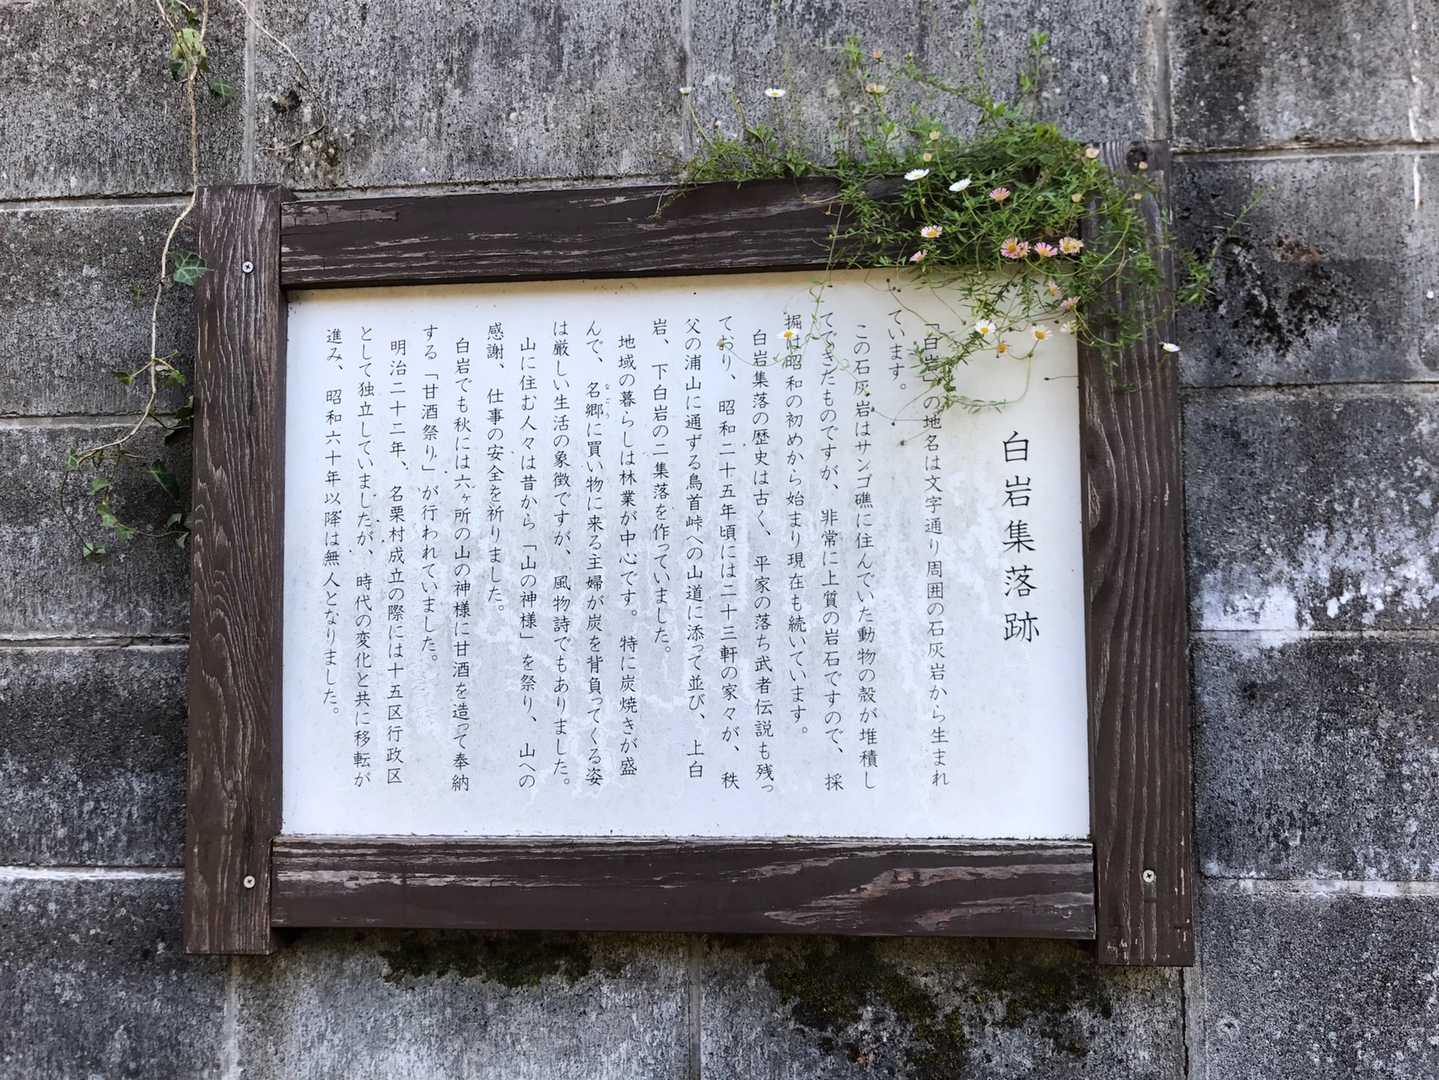 白岩集落跡
「白岩」の地名は文字通り周囲の石灰岩から生まれ
ています。
この石灰岩はサンゴ礁に住んでいた動物の殻が堆積し
てできたものですが、非常に上質の岩石ですので、採
掘は昭和の初めから始まり現在も続いています。
白岩集落の歴史は古く、平家の落ち武者伝説も残っ
ており、昭和二十五年頃には二十三軒の家々が、秩
父の浦山に通ずる鳥首峠への山道に添って並び、上白
岩、下白岩の二集落を作っていました。
地域の暮らしは林業が中心です。特に炭焼きが盛
んで、名郷に買い物に来る主婦が炭を背負ってくる姿
は厳しい生活の象徴ですが、風物詩でもありました。
山に住む人々は昔から「山の神様」を祭り、山への
感謝、仕事の安全を祈りました。
白岩でも秋には六ヶ所の山の神様に甘酒を造って奉納
する「甘酒祭り」が行われていました。
明治二十二年、名栗村成立の際には十五区行政区
として独立していましたが、時代の変化と共に移転が
進み、昭和六十年以降は無人となりました。